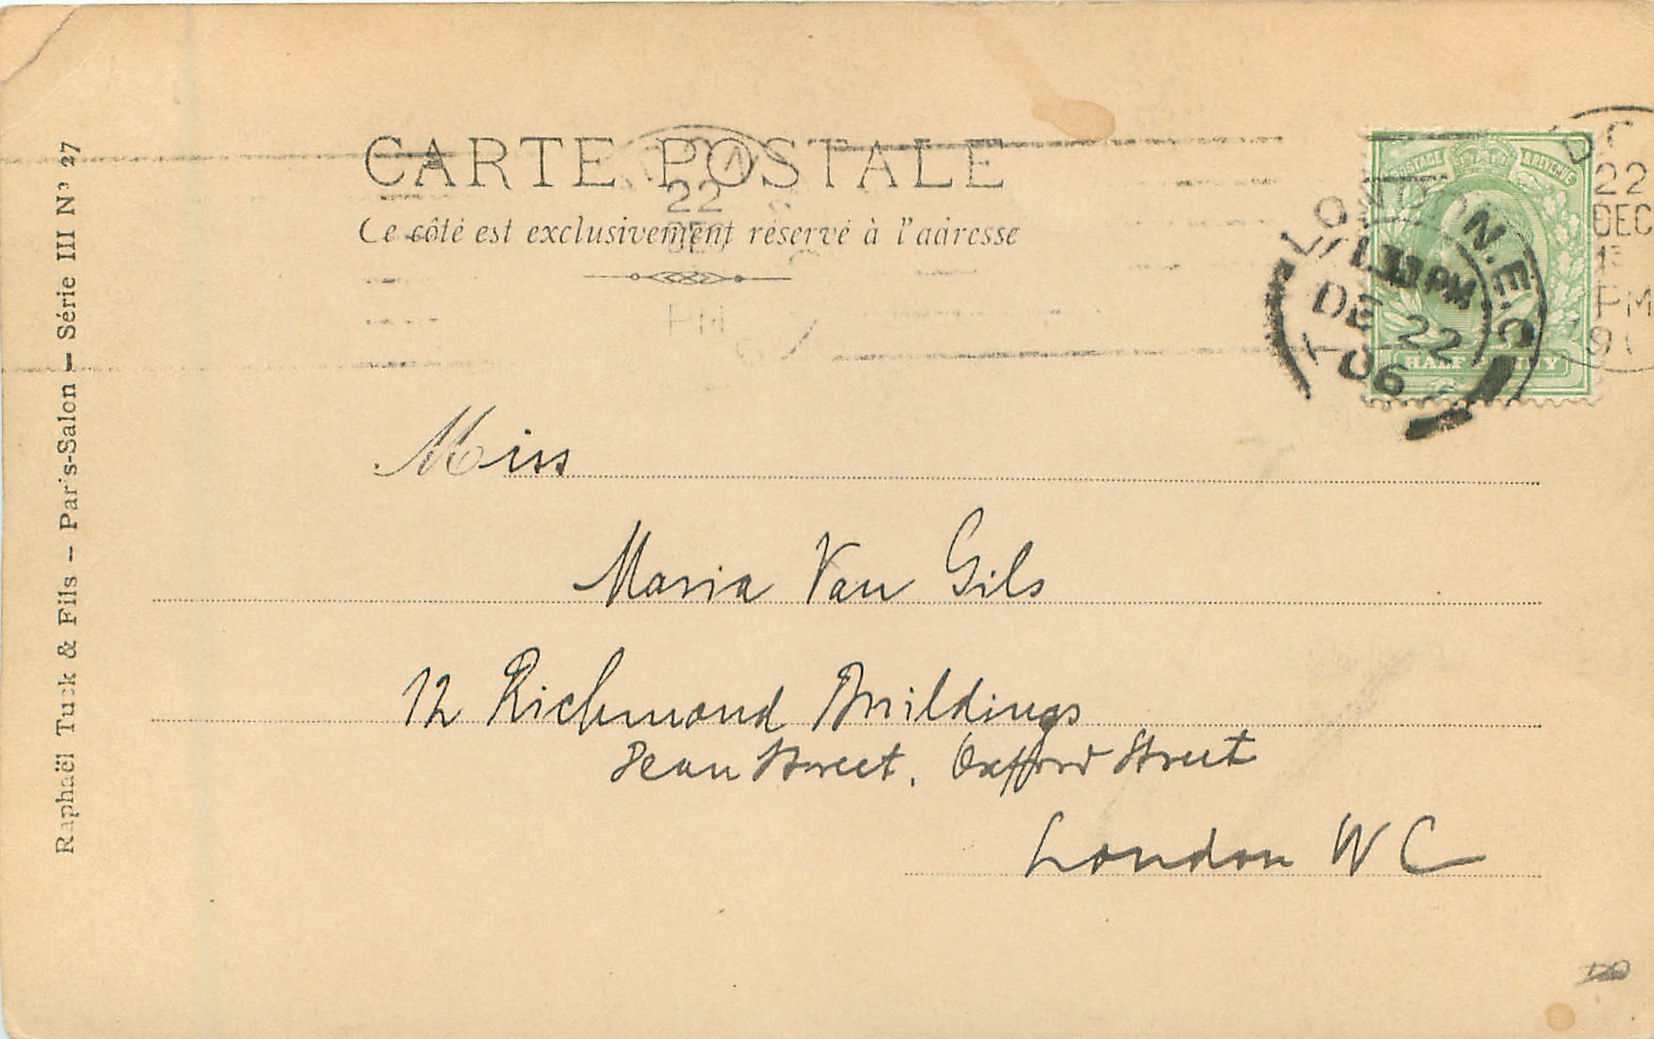 CARTE POSTALE
Ce côté est exclusivement réservé à l'adresse
Raphaël Tuck & Fils – Paris-Salon – Série III Nº 27
POSTAGE & REVENUE
HALF PENNY
LONDON. E.C
PM
DE 22
06
22
DEC
PM
22
PM
Miss
Maria Van Gils
12 Richmond Buildings
Dean Street, Oxford Street
London W C